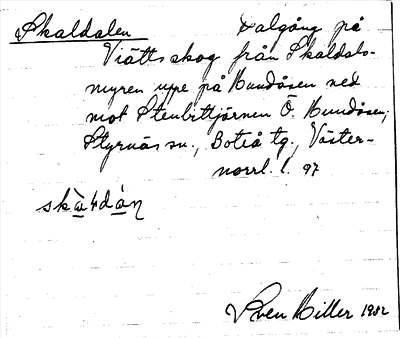 Skaldalen dalgång på
Viätts skog från Skaldals-
myren uppe på Kundåsen ned
mot Stenbittjärnen Ö. Kundåsen,
Styrnäs sn., Boteå tg., Väster-
norrl. l. 97
skàɬdán
Sven Hiller 1982